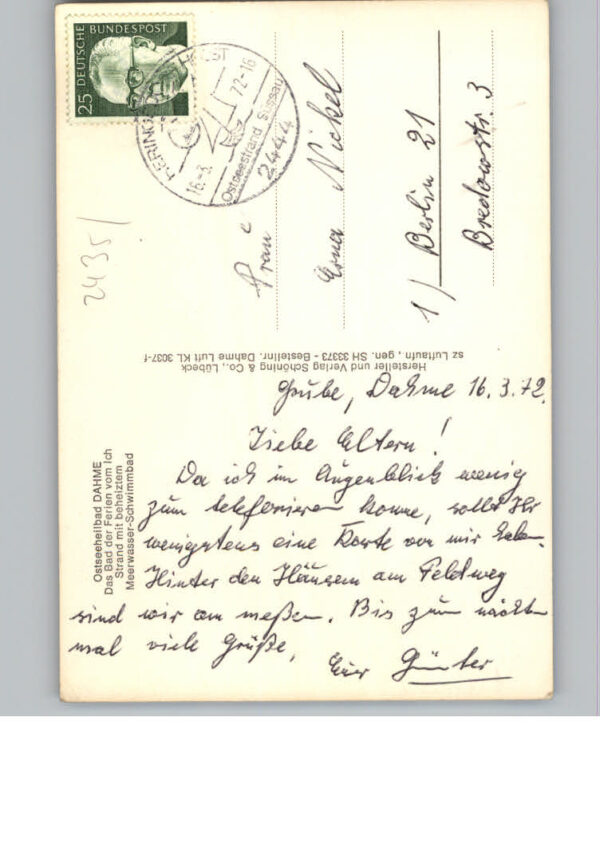 25
DEUTSCHE
BUNDESPOST
HERINGSDORF HOLST
16.-3. 72-16
Ostseestrand Süssau
2444
Frau
Erna Nickel
1) Berlin 21
Bredowstr. 3
2435/
Hersteller und Verlag Schöning & Co., Lübeck
sz Luftaufn., gen. SH 33373 - Bestellnr. Dahme Luft KL 3037-f
Ostseeheilbad DAHME
Das Bad der Ferien vom Ich
Strand mit beheiztem
Meerwasser-Schwimmbad
Grube, Dahme 16.3.72.
Liebe Eltern!
Da ich im Augenblick wenig
zum telefonieren komme, sollt Ihr
wenigstens eine Karte von mir haben.
Hinter den Häusern am Feldweg
sind wir am meßen. Bis zum nächsten
mal viele Grüße,
Euer Günter